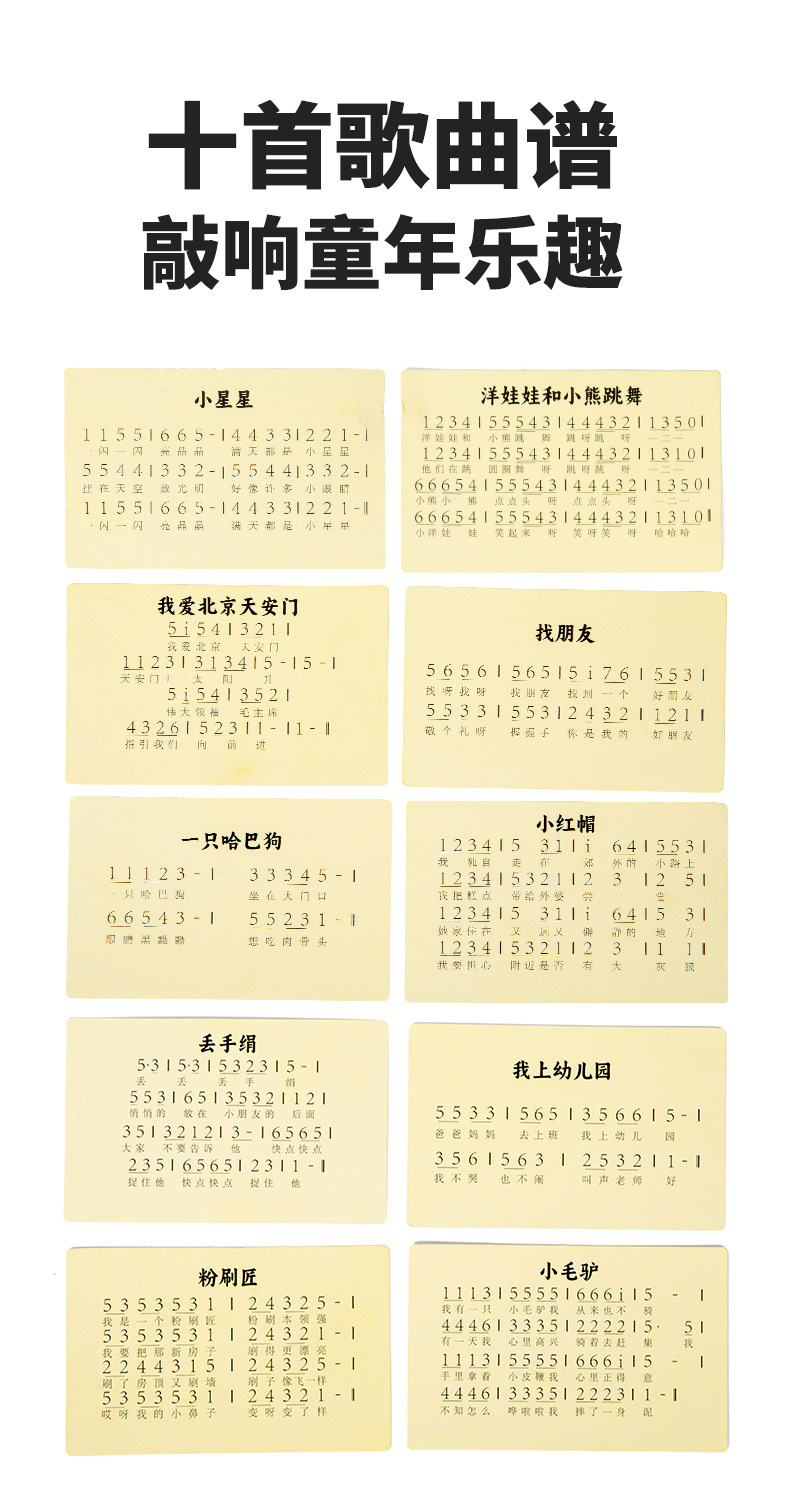 十首歌曲谱
敲响童年乐趣
小星星
1 1 5 5 | 6 6 5 - | 4 4 3 3 | 2 2 1 - |
一闪一闪 亮晶晶 满天都是 小星星
5 5 4 4 | 3 3 2 - | 5 5 4 4 | 3 3 2 - |
挂在天空 放光明 好像许多 小眼睛
1 1 5 5 | 6 6 5 - | 4 4 3 3 | 2 2 1 - ‖
一闪一闪 亮晶晶 满天都是 小星星
洋娃娃和小熊跳舞
1 2 3 4 | 5 5 5 4 3 | 4 4 4 3 2 | 1 3 5 0 |
洋娃娃和 小熊跳 舞 跳呀跳 呀 一二一
1 2 3 4 | 5 5 5 4 3 | 4 4 4 3 2 | 1 3 1 0 |
他们在跳 圆圈舞 呀 跳呀跳 呀 一二一
6 6 6 5 4 | 5 5 5 4 3 | 4 4 4 3 2 | 1 3 5 0 |
小熊小 熊 点点头 呀 点点头 呀 一二一
6 6 6 5 4 | 5 5 5 4 3 | 4 4 4 3 2 | 1 3 1 0 ‖
小洋娃 娃 笑起来 呀 笑呀笑 呀 哈哈哈
我爱北京天安门
5 i 5 4 | 3 2 1 |
我爱北京 天安门
1 1 2 3 | 3 1 3 4 | 5 - | 5 - |
天安门上 太 阳 升
5 i 5 4 | 3 5 2 |
伟大领袖 毛主席
4 3 2 6 | 5 2 3 | 1 - | 1 - ‖
指引我们 向 前 进
找朋友
5 6 5 6 | 5 6 5 | 5 i 7 6 | 5 5 3 |
找呀找呀 找朋友 找到一个 好朋友
5 5 3 3 | 5 5 3 | 2 4 3 2 | 1 2 1 ‖
敬个礼呀 握握手 你是我的 好朋友
一只哈巴狗
1 1 1 2 3 - | 3 3 3 4 5 - |
一只哈巴狗 坐在大门口
6 6 5 4 3 - | 5 5 2 3 1 - ‖
眼睛黑黝黝 想吃肉骨头
小红帽
1 2 3 4 | 5 3 1 | i 6 4 | 5 5 3 |
我 独自 走在 郊 外的 小路上
1 2 3 4 | 5 3 2 1 | 2 3 | 2 5 |
我把糕点 带给外婆 尝 一 尝
1 2 3 4 | 5 3 1 | i 6 4 | 5 3 |
她家住在 又 远又 僻 静的 地 方
1 2 3 4 | 5 3 2 1 | 2 3 | 1 1 ‖
我要担心 附近是否 有 大 灰 狼
丢手绢
5·3 | 5·3 | 5 3 2 3 | 5 - |
丢 丢 丢 手 绢
5 5 3 | 6 5 | 3 5 3 2 | 1 2 |
悄悄的 放在 小朋友的 后面
3 5 | 3 2 1 2 | 3 - | 6 5 6 5 |
大家 不要告诉 他 快点快点
2 3 5 | 6 5 6 5 | 2 3 | 1 - ‖
捉住他 快点快点 捉住 他
我上幼儿园
5 5 3 3 | 5 6 5 | 3 5 6 6 | 5 - |
爸爸妈妈 去上班 我上幼儿 园
3 5 6 | 5 6 3 | 2 5 3 2 | 1 - ‖
我不哭 也不闹 叫声老师 好
粉刷匠
5 3 5 3 5 3 1 | 2 4 3 2 5 - |
我是一个粉刷匠 粉刷本领强
5 3 5 3 5 3 1 | 2 4 3 2 1 - |
我要把那新房子 刷得更漂亮
2 2 4 4 3 1 5 | 2 4 3 2 5 - |
刷了房顶又刷墙 刷子像飞一样
5 3 5 3 5 3 1 | 2 4 3 2 1 - ‖
哎呀我的小鼻子 变呀变了样
小毛驴
1 1 1 3 | 5 5 5 5 | 6 6 6 i | 5 - |
我有一只 小毛驴我 从来也不 骑
4 4 4 6 | 3 3 3 5 | 2 2 2 2 | 5· 5 |
有一天我 心里高兴 骑着去赶 集 我
1 1 1 3 | 5 5 5 5 | 6 6 6 i | 5 - |
手里拿着 小皮鞭我 心里正得 意
4 4 4 6 | 3 3 3 5 | 2 2 2 3 | 1 - ‖
不知怎么 哗啦啦我 摔了一身 泥